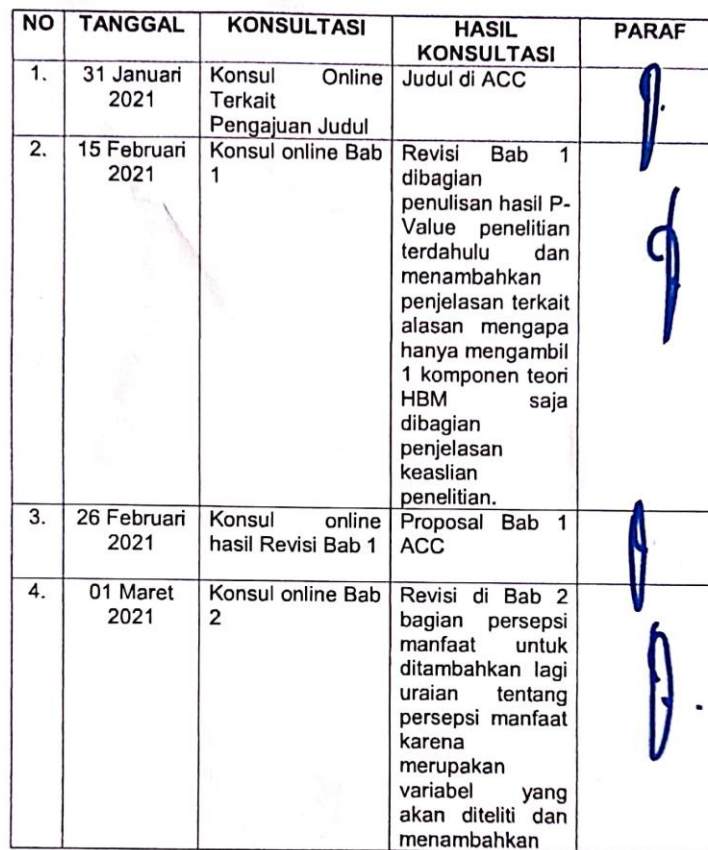 NO TANGGAL KONSULTASI HASIL KONSULTASI PARAF
1. 31 Januari 2021
Konsul Online
Terkait
Pengajuan Judul
Judul di ACC
2. 15 Februari 2021
Konsul online Bab
1
Revisi Bab 1
dibagian
penulisan hasil P-
Value penelitian
terdahulu dan
menambahkan
penjelasan terkait
alasan mengapa
hanya mengambil
1 komponen teori
HBM saja
dibagian
penjelasan
keaslian
penelitian.
3. 26 Februari 2021
Konsul online
hasil Revisi Bab 1
Proposal Bab 1
ACC
4. 01 Maret 2021
Konsul online Bab
2
Revisi di Bab 2
bagian persepsi
manfaat untuk
ditambahkan lagi
uraian tentang
persepsi manfaat
karena
merupakan
variabel yang
akan diteliti dan
menambahkan